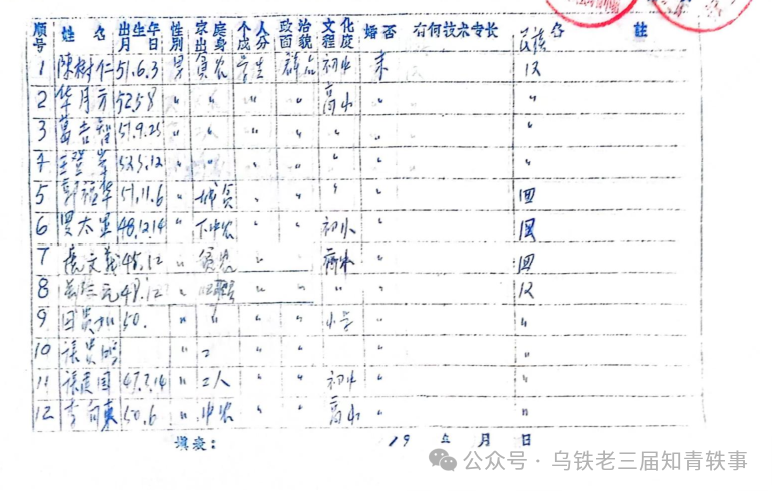 顺号 姓名 出生年月日 性别 家庭出身 个人成分 政治面貌 文化程度 婚否 有何技术专长 民族 註
1 陳树仁 51.6.3 男 貧农 学生 群众 初小 未 汉
2 华月方 52.5.8 〃 〃 〃 〃 高小 〃 〃
3 葛吉智 51.9.25 〃 〃 〃 〃 〃 〃 〃
4 王登峯 52.3.12 〃 〃 〃 〃 〃 〃
5 郭福华 51.11.6 〃 城贫 〃 〃 〃 〃 回
6 贾太 48.12.14 〃 下中农 〃 初小 〃 回
7 文義 45.12 〃 貧农 〃 高小 〃 回
8 元 48.12 〃 〃 〃 〃 〃 汉
9 50. 〃 〃 〃 〃 小学 〃 〃
10 张贵 〃 〃 〃 〃 〃 〃
11 张建国 47.7.14 〃 工人 〃 〃 初小 〃 〃
12 李向東 50.6 〃 中农 〃 〃 高小 〃 〃
填表： 19 年 月 日
公众号 · 乌铁老三届知青轶事